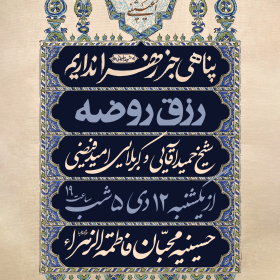 پناهی جز زهرا نداریم
رزق روضه
شیخ حمید آقایی و کربلایی امید فیضی
از یکشنبه ۱۲ دی ۵ شب ساعت ۱۹
حسینیه محبان فاطمة الزهراء